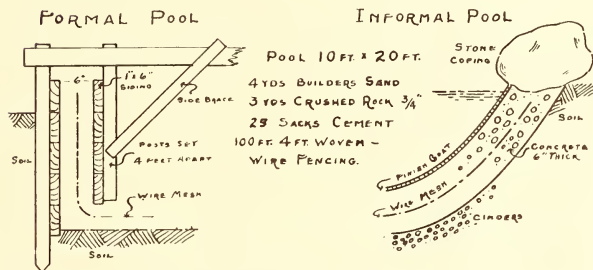 FORMAL POOL
6"
1"x6"
SIDING
SIDE BRACE
SOIL
POSTS SET
4 FEET APART
WIRE MESH
SOIL
POOL 10 FT. X 20 FT.
4 YDS BUILDERS SAND
3 YDS CRUSHED ROCK 3/4"
25 SACKS CEMENT
100 FT. 4 FT. WOVEN -
WIRE FENCING.
INFORMAL POOL
STONE
COPING
SOIL
CONCRETE
6" THICK
FINISH COAT
WIRE MESH
CINDERS